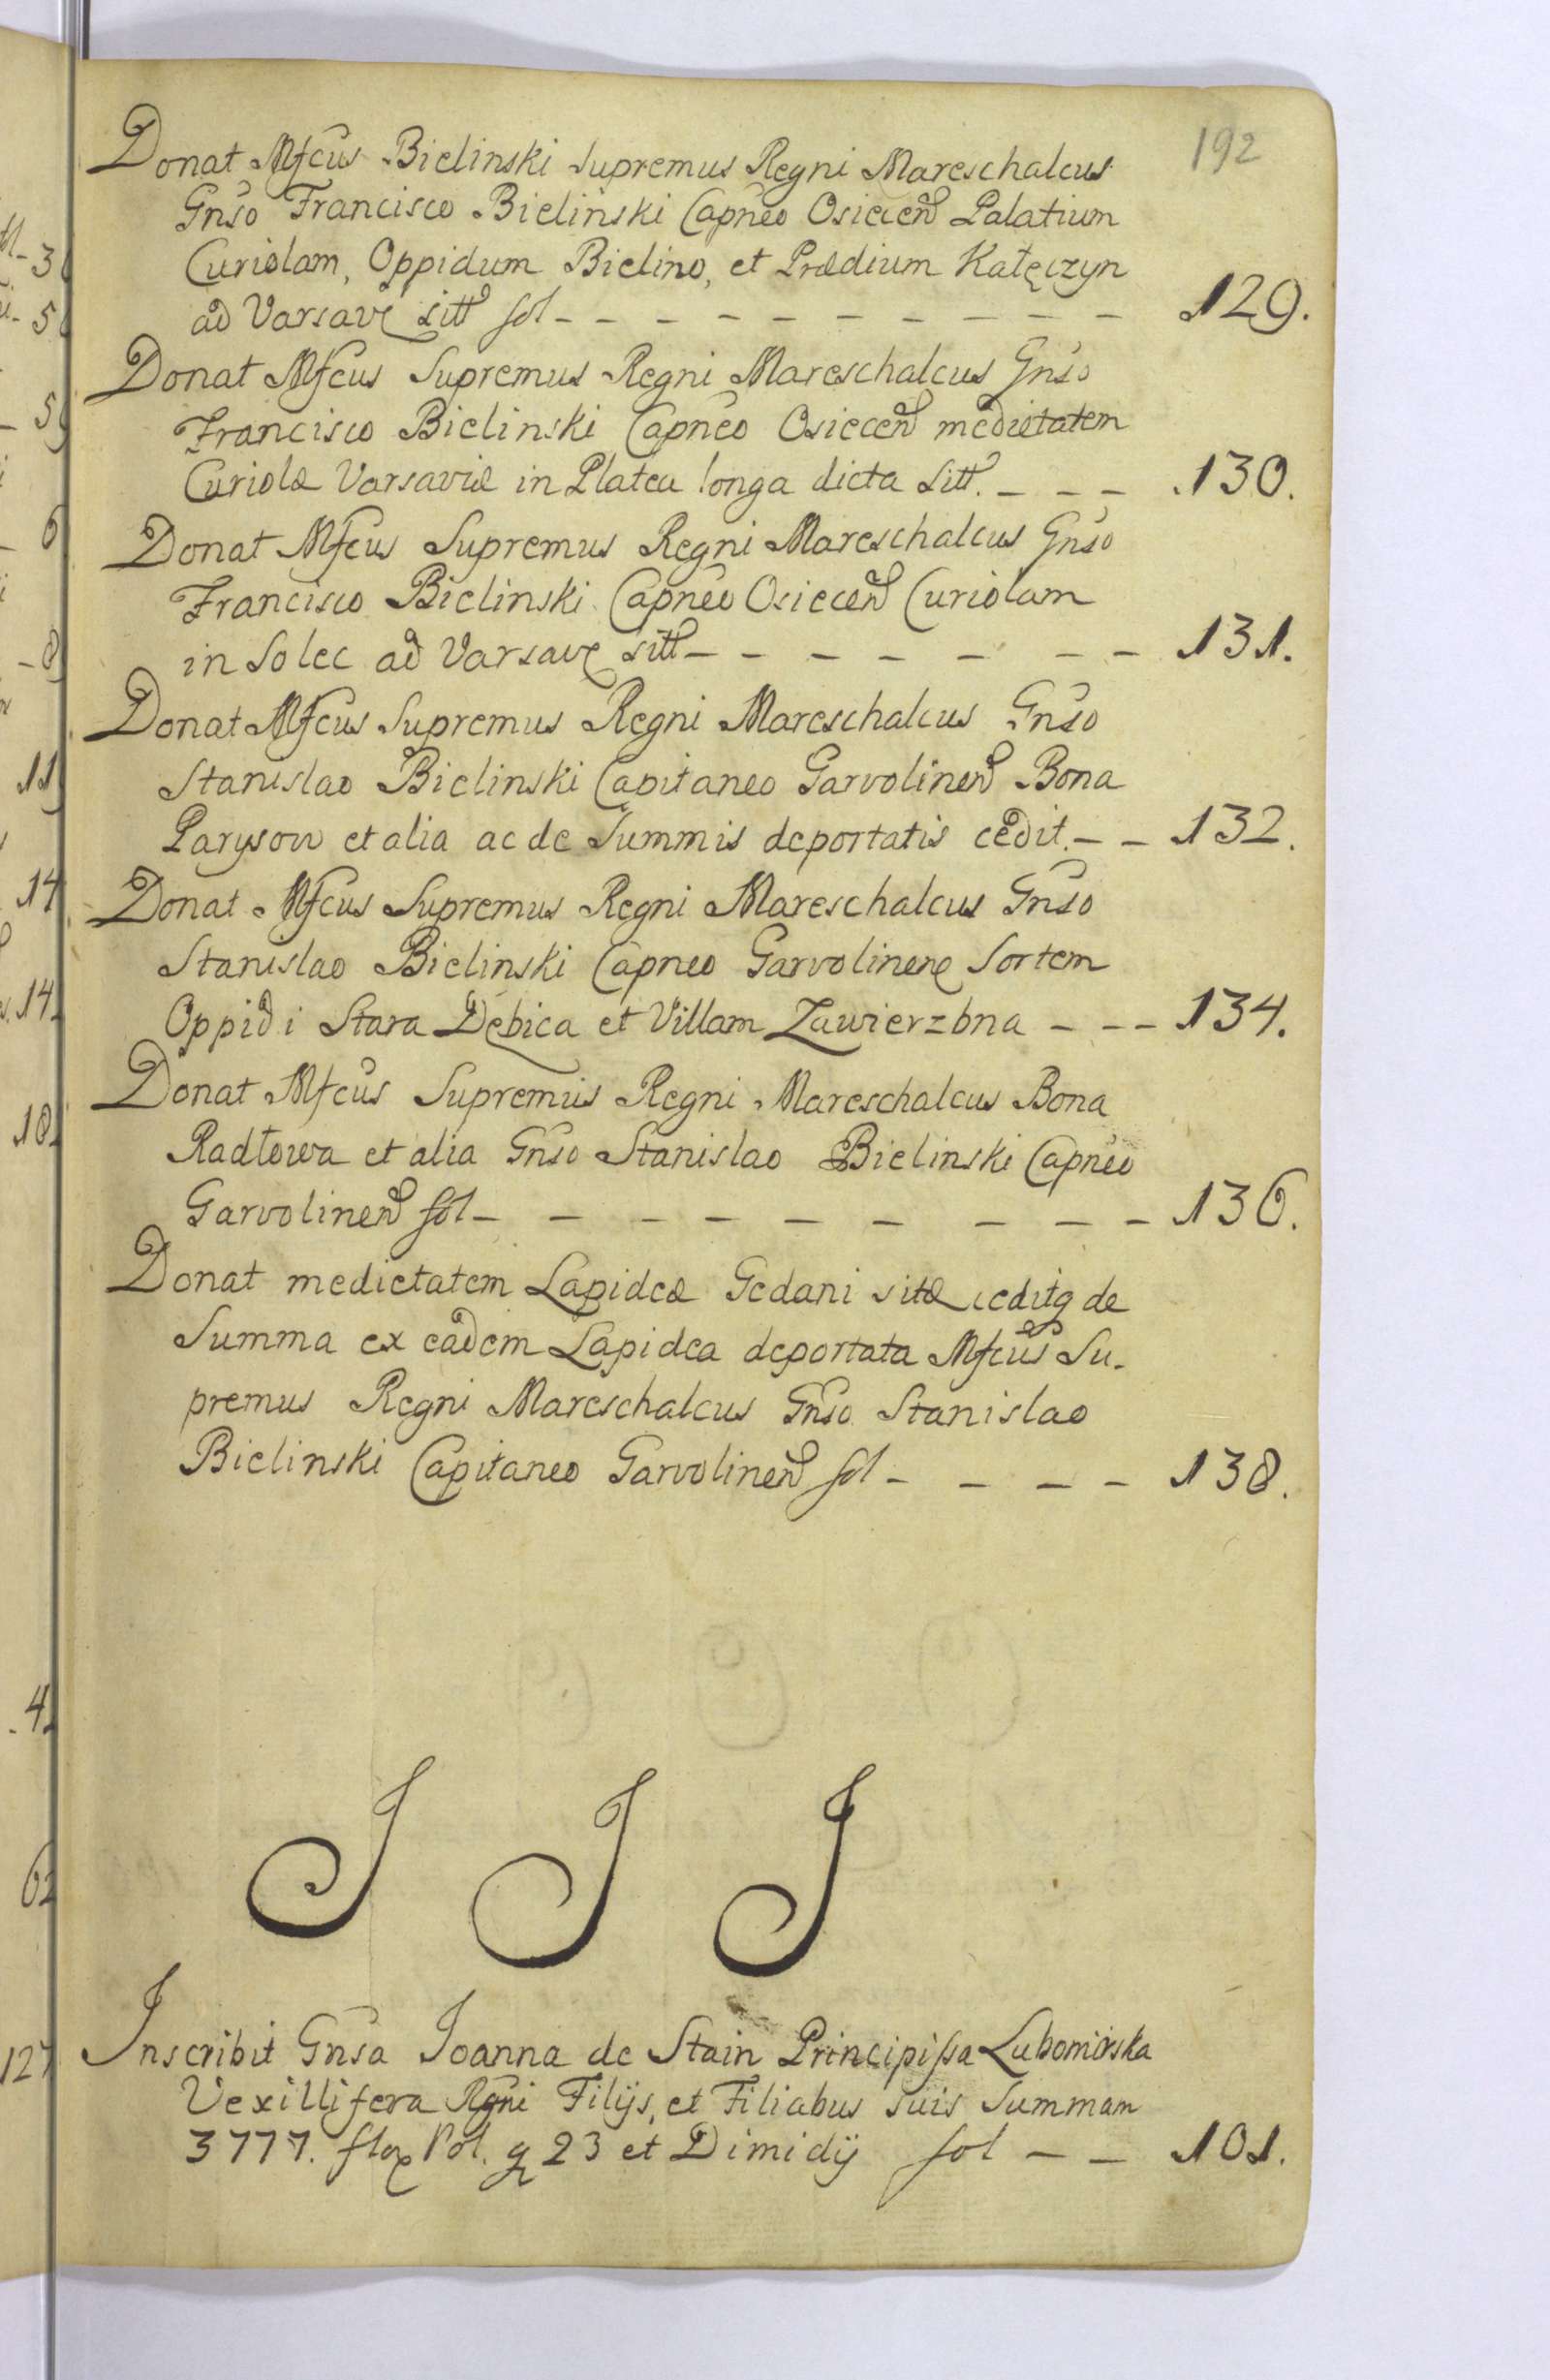 192
Donat Mfcus Bielinski Supremus Regni Mareschalcus
Gnso Francisco Bielinski Capneo Osiecen Palatium
Curiolam, Oppidum Bielino, et Prædium Katęczyn
ad Varsavę sitt fol - - - - - - - - - - 129.
Donat Mfcus Supremus Regni Mareschalcus Gnso
Francisco Bielinski Capneo Osiecen medietatem
Curiolæ Varsaviæ in Platea longa dicta sitt. - - - 130.
Donat Mfcus Supremus Regni Mareschalcus Gnso
Francisco Bielinski Capneo Osiecen Curiolam
in Solec ad Varsavę sitt - - - - - - - 131.
Donat Mfcus Supremus Regni Mareschalcus Gnso
Stanislao Bielinski Capitaneo Garvolinen Bona
Parysow et alia ac de Summis deportatis cedit. - - 132.
Donat Mfcus Supremus Regni Mareschalcus Gnso
Stanislao Bielinski Capneo Garvolinen Sortem
Oppidi Stara Dębica et Villam Zawierzbna - - - 134.
Donat Mfcus Supremus Regni Mareschalcus Bona
Radłowa et alia Gnso Stanislao Bielinski Capneo
Garvolinen fol - - - - - - - - - 136.
Donat medietatem Lapideæ Gedani sitæ ceditq de
Summa ex eadem Lapidea deportata Mfcus Su-
premus Regni Mareschalcus Gnso Stanislao
Bielinski Capitaneo Garvolinen fol - - - - 138.
J J J
Inscribit Gnsa Joanna de Stain Principissa Lubomirska
Vexillifera Rgni Filijs, et Filiabus suis Summam
3777. flo Pol. g 23 et Dimidij fol - - 101.